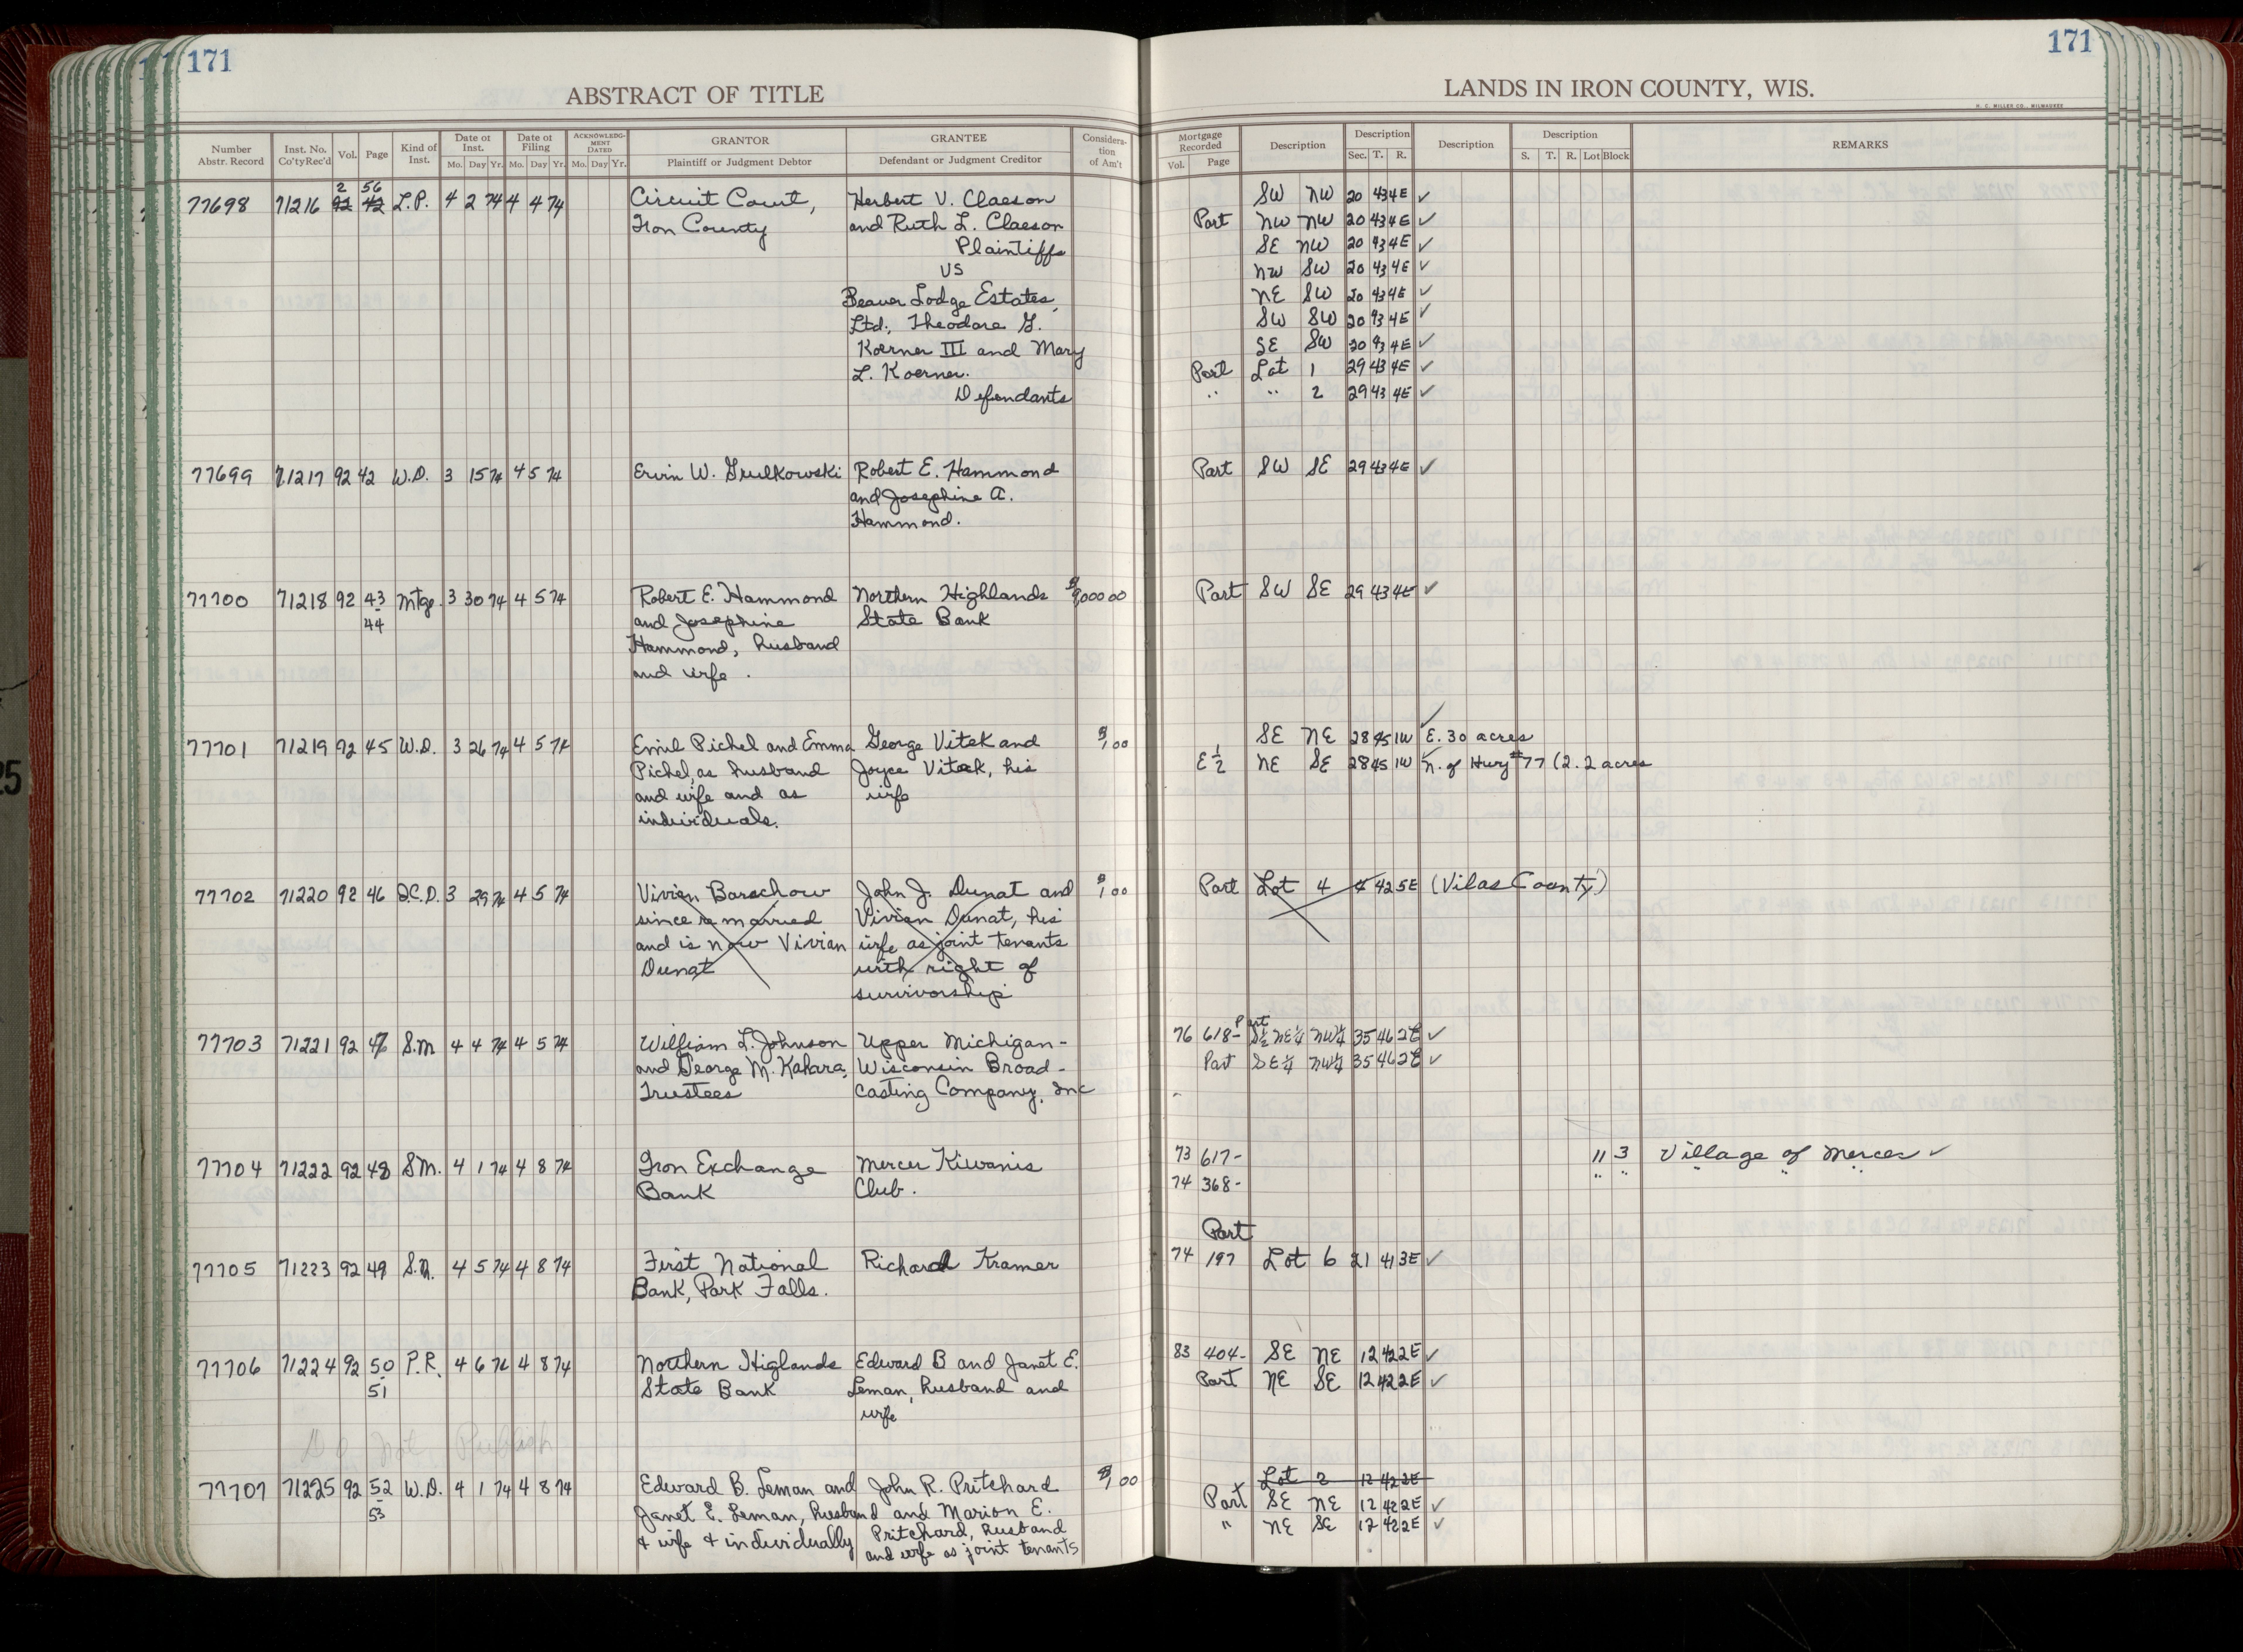 171
171
ABSTRACT OF TITLE
LANDS IN IRON COUNTY, WIS.
H. C. MILLER CO., MILWAUKEE
Number Abstr. Record | Inst. No. Co'ty Rec'd | Vol. | Page | Kind of Inst. | Date of Inst. Mo. Day Yr. | Date of Filing Mo. Day Yr. | ACKNOWLEDGMENT DATED Mo. Day Yr. | GRANTOR Plaintiff or Judgment Debtor | GRANTEE Defendant or Judgment Creditor | Consideration of Am't | Mortgage Recorded Vol. Page | Description | Description Sec. T. R. | Description | Description S. T. R. Lot Block | REMARKS
2 56
77698 71216 92 42 L.P. 4 2 74 4 4 74 Circuit Court, Herbert V. Claeson SW NW 20 43 4E ✓
Iron County and Ruth L. Claeson Part NW NW 20 43 4E ✓
Plaintiffs SE NW 20 43 4E ✓
VS NW SW 20 43 4E ✓
Beaver Lodge Estates, NE SW 20 43 4E ✓
Ltd., Theodore G. SW SW 20 43 4E ✓
Koerner III and Mary SE SW 20 43 4E ✓
L. Koerner. Part Lot 1 29 43 4E ✓
Defendants " " 2 29 43 4E ✓
77699 71217 92 42 W.D. 3 15 74 4 5 74 Ervin W. Grulkowski Robert E. Hammond Part SW SE 29 43 4E ✓
and Josephine A.
Hammond.
77700 71218 92 43 Mtge. 3 30 74 4 5 74 Robert E. Hammond Northern Highlands $9,000 00 Part SW SE 29 43 4E ✓
44 and Josephine State Bank
Hammond, husband
and wife.
77701 71219 92 45 W.D. 3 26 74 4 5 74 Emil Pichel and Emma George Vitek and $1,00 SE NE 28 45 1W ✓ E. 30 acres
Pichel, as husband Joyce Vitek, his E ½ NE SE 28 45 1W ✓ N. of Hwy #77 (2.2 acres
and wife and as wife
individuals.
77702 71220 92 46 Q.C.D. 3 29 74 4 5 74 Vivien Barschow John J. Dunat and $1,00 Part Lot 4 4 42 5E (Vilas County)
since remarried Vivien Dunat, his
and is now Vivian wife as joint tenants
Dunat with right of
survivorship
77703 71221 92 47 S.M. 4 4 74 4 5 74 William L. Johnson Upper Michigan- 76 618- Part S½ NE¼ NW¼ 35 46 2E ✓
and George M. Kahara, Wisconsin Broad- Part SE¼ NW¼ 35 46 2E ✓
Trustees casting Company, Inc
77704 71222 92 48 S.M. 4 1 74 4 8 74 Iron Exchange Mercer Kiwanis 73 617- 11 3 Village of Mercer ✓
Bank Club. 74 368- " " " " "
Part
77705 71223 92 49 S.M. 4 5 74 4 8 74 First National Richard Kramer 74 197 Lot 6 21 41 3E ✓
Bank, Park Falls.
77706 71224 92 50 P.R. 4 6 74 4 8 74 Northern Higlands Edward B and Janet E. 83 404- SE NE 12 42 2E ✓
51 State Bank Leman, husband and Part NE SE 12 42 2E ✓
wife
Do Not Publish
77707 71225 92 52 W.D. 4 1 74 4 8 74 Edward B. Leman and John R. Pritchard $1,00 Lot 2 12 42 2E
53 Janet E. Leman, husband and Marion E. Part SE NE 12 42 2E ✓
& wife & individually Pritchard, husband " NE SE 12 42 2E ✓
and wife as joint tenants